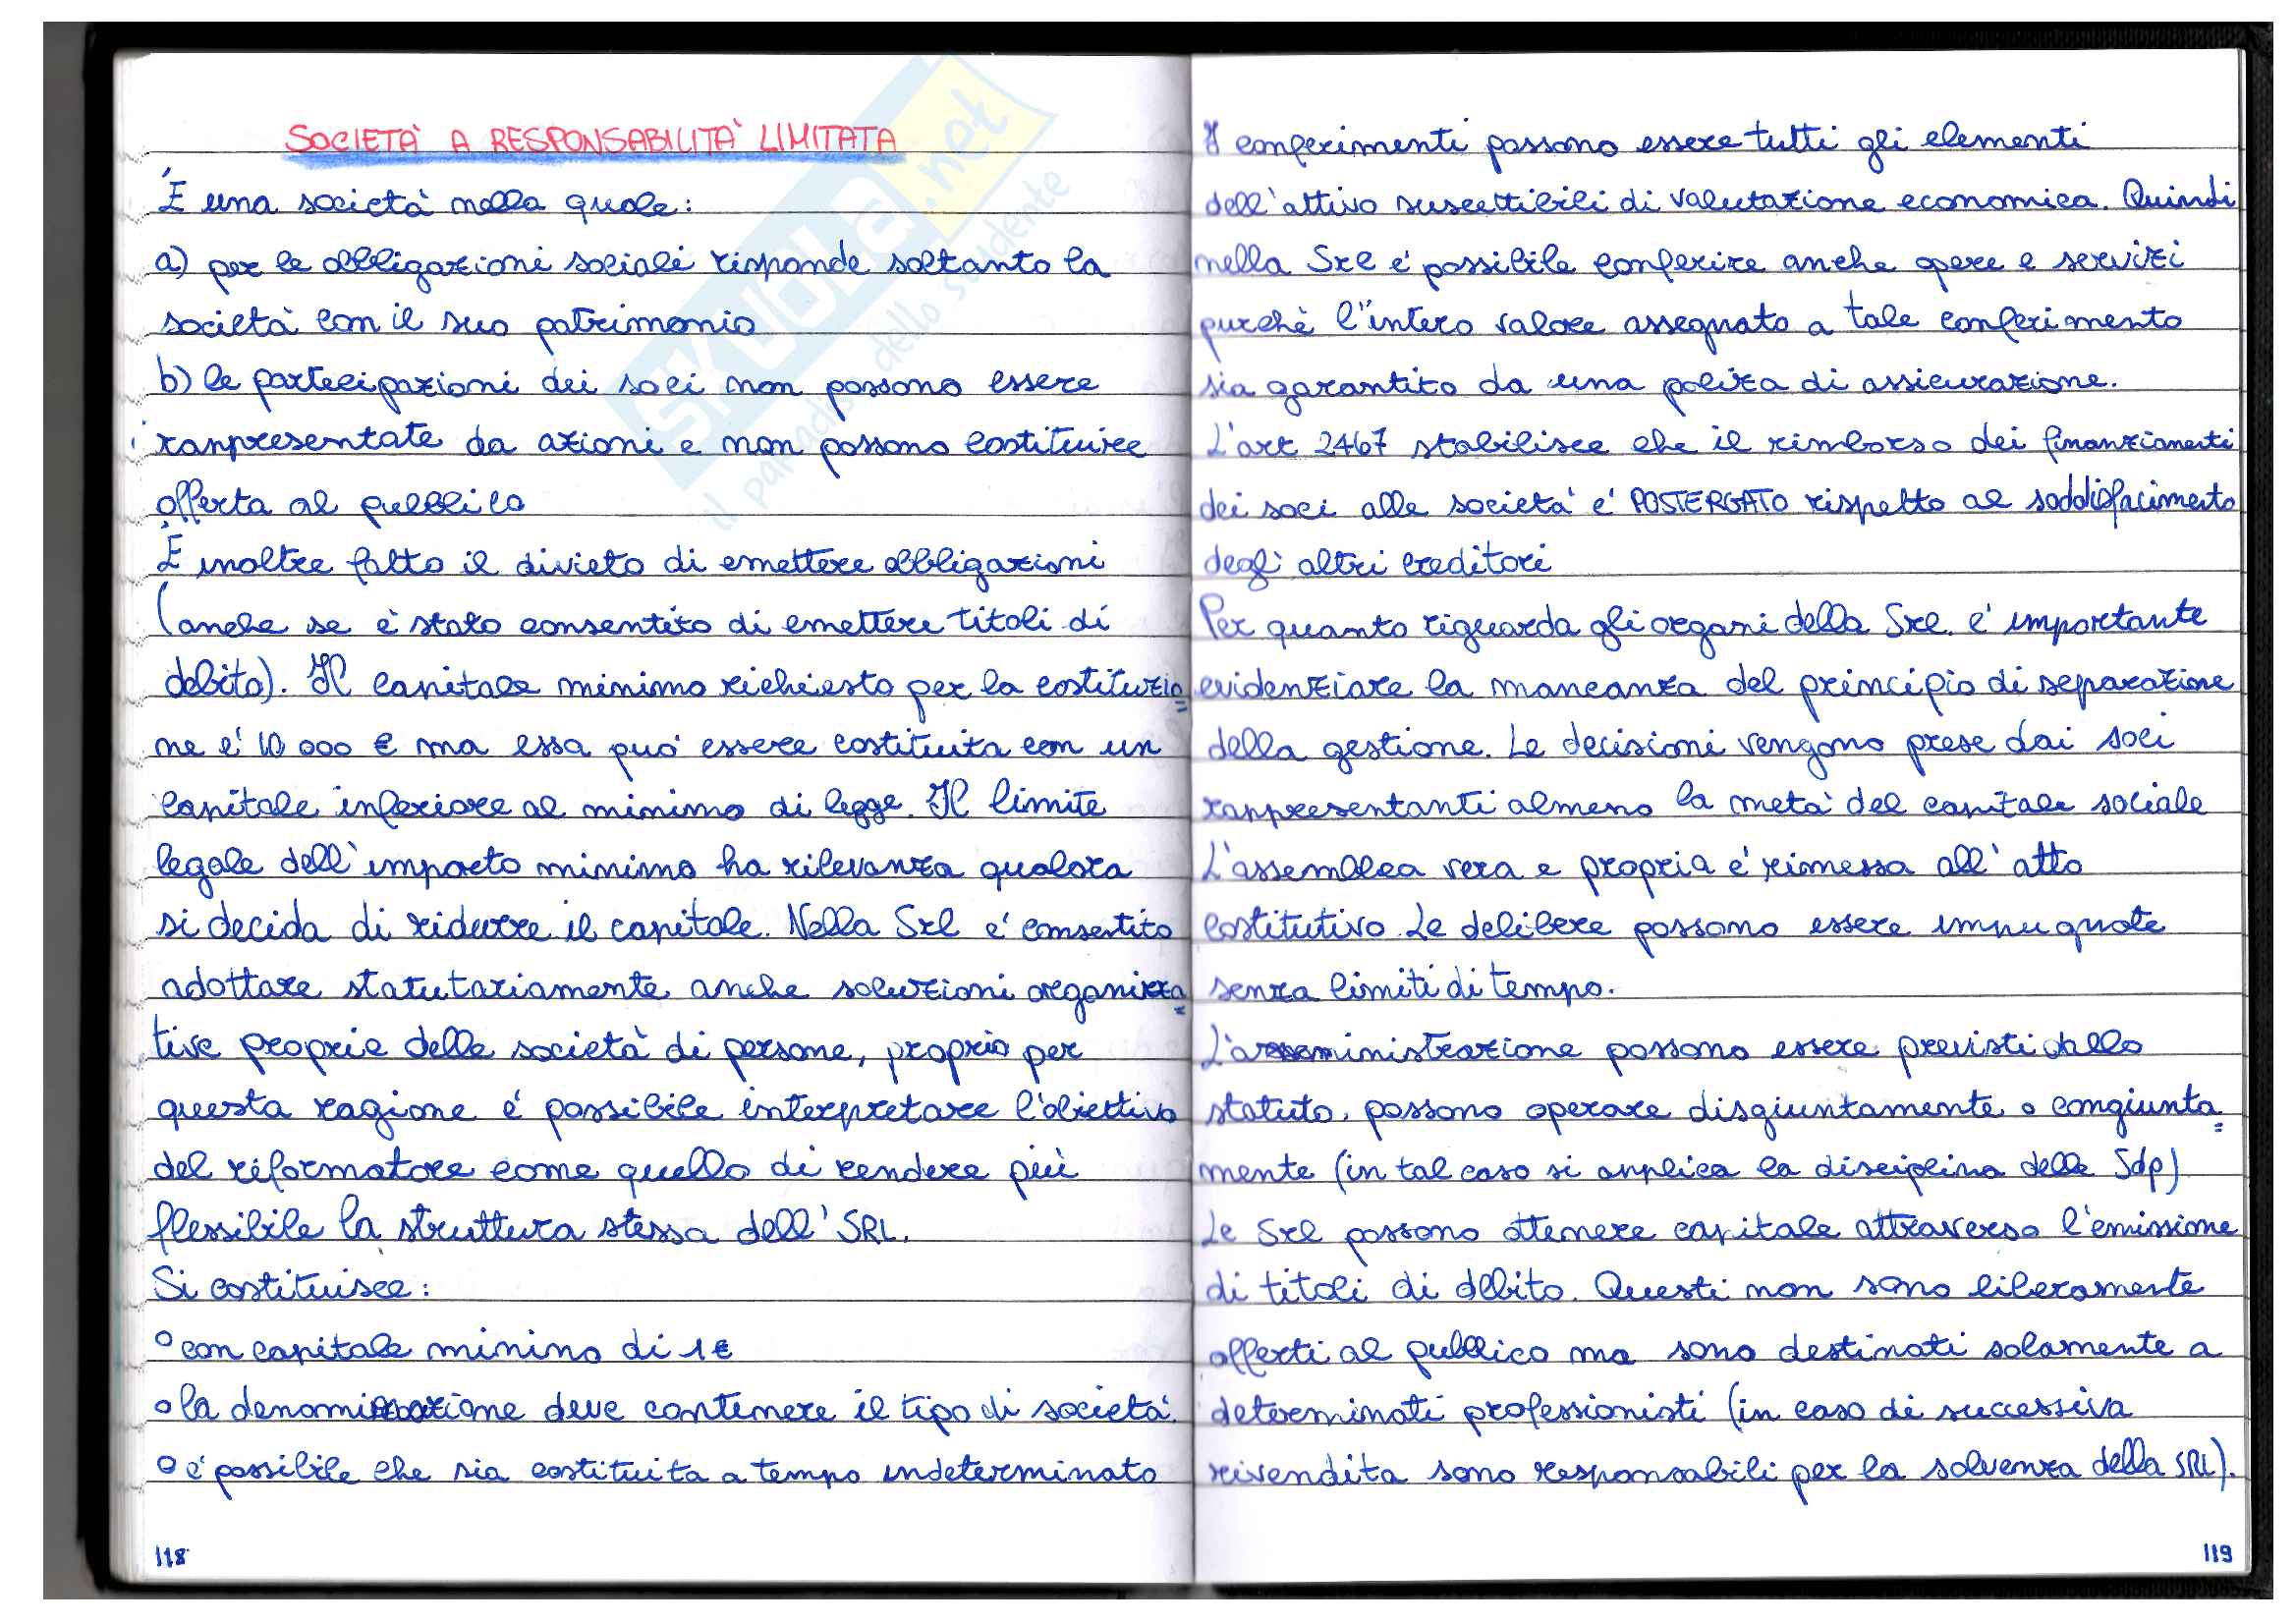 SOCIETÀ A RESPONSABILITÀ LIMITATA
È una società nella quale:
a) per le obbligazioni sociali risponde soltanto la
società con il suo patrimonio
b) le partecipazioni dei soci non possono essere
rappresentate da azioni e non possono costituire
offerta al pubblico
È inoltre fatto il divieto di emettere obbligazioni
(anche se è stato consentito di emettere titoli di
debito). Il capitale minimo richiesto per la costituzio=
ne è 10 000 € ma essa può essere costituita con un
capitale inferiore al minimo di legge. Il limite
legale dell'importo minimo ha rilevanza qualora
si decida di ridurre il capitale. Nella Srl è consentito
adottare statutariamente anche soluzioni organizza=
tive proprie delle società di persone, proprio per
questa ragione è possibile interpretare l'obiettivo
del riformatore come quello di rendere più
flessibile la struttura stessa dell'SRL.
Si costituisce:
° con capitale minino di 1€
° la denominazione deve contenere il tipo di società
° è possibile che sia costituita a tempo indeterminato
118
I conferimenti possono essere tutti gli elementi
dell'attivo suscettibili di valutazione economica. Quindi
nella Srl è possibile conferire anche opere e servizi
purchè l'intero valore assegnato a tale conferimento
sia garantito da una poliza di assicurazione.
L'art 2467 stabilisce che il rimborso dei finanziamenti
dei soci alla società è POSTERGATO rispetto al soddisfacimento
degli altri creditori
Per quanto riguarda gli organi della Srl. è importante
evidenziare la mancanza del principio di separazione
della gestione. Le decisioni vengono prese dai soci
rappresentanti almeno la metà del capitale sociale
L'assemblea vera e propria è rimessa all'atto
costitutivo. Le delibere possono essere impugnate
senza limiti di tempo.
possono essere previsti dallo
statuto, possono operare disgiuntamente o congiunta=
mente (in tal caso si applica la disciplina delle Sdp)
Le Srl possono ottenere capitale attraverso l'emissione
di titoli di debito. Questi non sono liberamente
offerti al pubblico ma sono destinati solamente a
determinati professionisti (in caso di successiva
rivendita sono responsabili per la solvenza della SRL).
119
SKUOLA.net
il paradiso dello studente